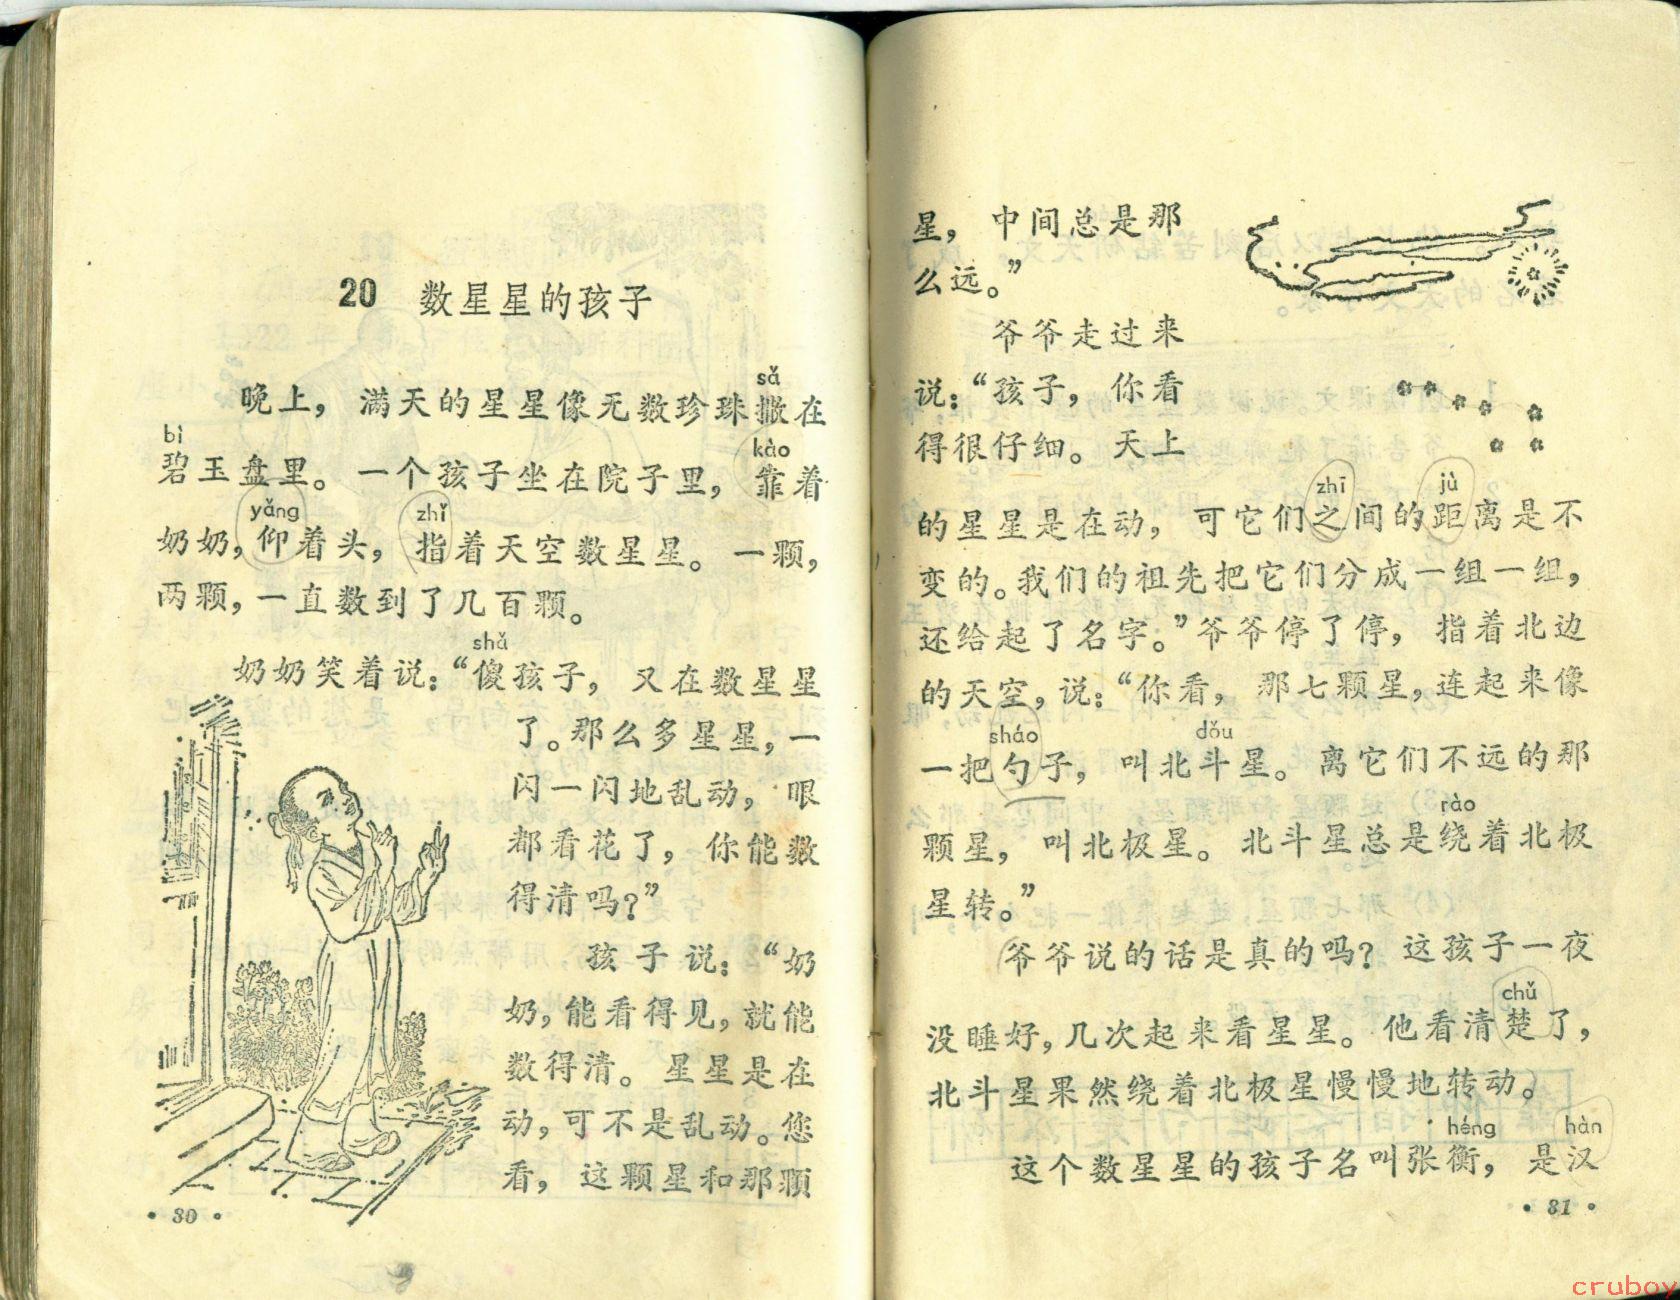 20 数星星的孩子
sǎ
晚上，满天的星星像无数珍珠撒在
bì kào
碧玉盘里。一个孩子坐在院子里，靠着
yǎng zhǐ
奶奶，仰着头，指着天空数星星。一颗，
两颗，一直数到了几百颗。
shǎ
奶奶笑着说：“傻孩子，又在数星星
了。那么多星星，一
闪一闪地乱动，眼
都看花了，你能数
得清吗？”
孩子说：“奶
奶，能看得见，就能
数得清。星星是在
动，可不是乱动。您
看，这颗星和那颗
• 80 •
星，中间总是那
么远。”
爷爷走过来
说：“孩子，你看
得很仔细。天上
zhī jù
的星星是在动，可它们之间的距离是不
变的。我们的祖先把它们分成一组一组，
还给起了名字。”爷爷停了停，指着北边
的天空，说：“你看，那七颗星，连起来像
sháo dǒu
一把勺子，叫北斗星。离它们不远的那
rào
颗星，叫北极星。北斗星总是绕着北极
星转。”
爷爷说的话是真的吗？这孩子一夜
chǔ
没睡好，几次起来看星星。他看清楚了，
北斗星果然绕着北极星慢慢地转动。
héng hàn
这个数星星的孩子名叫张衡，是汉
• 81 •
cruboy